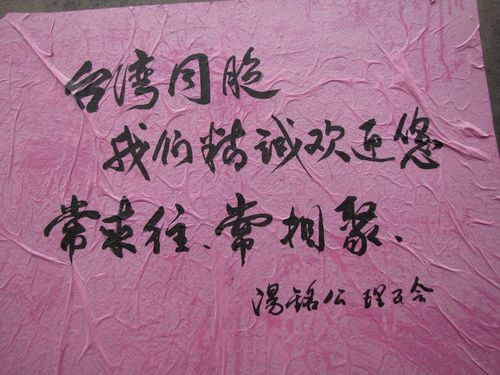 台湾同胞
我们精诚欢迎您
常来往、常相聚、
汤铭公理事会